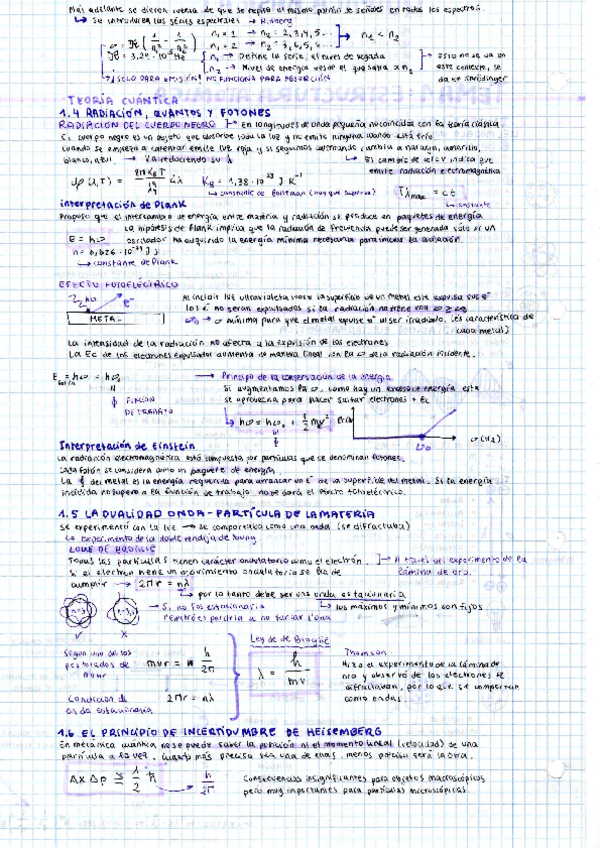 Más adelante se dieron cuenta de que se repetía el mismo patrón de señales en todos los espectros.
↳ Se introducen las séries espectrales → Rydberg
ω = R ( 1/n₁² - 1/n₂² )
n₁ = 1 → n₂ = 2, 3, 4, 5...
n₁ = 2 → n₂ = 3, 4, 5, 6...
→ n₁ < n₂
R = 3,29 · 10¹⁵ Hz
n₁ → Define la serie, el nivel de llegada
n₂ → Nivel de energía desde el que salta a n₁
¡SOLO PARA EMISIÓN! NO FUNCIONA PARA ABSORCIÓN
TEORÍA CUÁNTICA
1.4 RADIACIÓN, QUANTOS Y FOTONES
RADIACIÓN DEL CUERPO NEGRO → En longitudes de onda pequeña no coincidía con la teoría clásica.
El cuerpo negro es un objeto que absorbe toda la luz y no emite ninguna cuando está frío
Cuando se empieza a calentar emite luz roja y si seguimos calentando cambia a naranja, amarillo,
blanco, azul. → Va reduciendo su λ
↳ El cambio de color indica que
emite radiación electromagnética
dρ (λ,T) = 8π K_B T / λ⁴ dλ
K_B = 1,38 · 10⁻²³ J K⁻¹
↳ constante de Boltzman
Tλmax = cte
↳ constante
Interpretación de Plank
Propuso que el intercambio de energía entre materia y radiación se produce en paquetes de energía
La hipótesis de Plank implica que la radiación de frecuencia puede ser generada sólo si un
oscilador ha adquirido la energía mínima necesaria para iniciar la oscilación
E = hω
h = 6,626 · 10⁻³⁴ J s
↳ constante de Plank
EFECTO FOTOELÉCTRICO
hω
e⁻
METAL
Al incidir luz ultravioleta sobre la superficie de un metal este expulsa sus e⁻
Los e⁻ no seran expulsados si la radiación no tiene una ω ≥ ω₀
ω₀ → ω mínima para que el metal expulse e⁻ al ser irradiado. (es característica de
cada metal)
La intensidad de la radiación no afecta a la expulsión de los electrones
La Ec de los electrones expulsados aumenta de manera lineal con la ω de la radiación incidente.
E = hω = hω₀
→ Principio de la conservación de la energía
Si augmentamos la ω, como hay un exceso de energía esta
se aprovecha para hacer saltar electrones + Ec
φ FUNCIÓN
DE TRABAJO
↳ hω = hω₀ + 1/2 mv²
φ
ω₀
ω (Hz)
Interpretación de Einstein
La radiación electromagnética está compuesta por partículas que se denominan fotones.
Cada fotón se considera como un paquete de energía.
La φ del metal es la energía requerida para arrancar un e⁻ de la superficie del metal. Si la energía
incidida no supera a la función de trabajo no se dará el efecto fotoeléctrico.
1.5 LA DUALIDAD ONDA-PARTÍCULA DE LA MATERIA
Se experimentó con la luz → se comportaba como una onda (se difractaba)
↳ Experimento de la doble rendija de Young
Todas las partículas tienen carácter ondulatorio como el electrón.
→ A través del experimento de la
lámina de oro.
Si el electron tiene un movimiento ondulatorio se ha de
cumplir → 2πr = nλ
↳ por lo tanto debe ser una onda estacionaria
↳ los máximos y mínimos son fijos
→ Si no fos estacionaria
l'electró es perdria a no tancar l'ona
✓ X
Según uno de los
postulados de
Bohr
mvr = n h/2π
Condición de
onda estacionaria
2πr = nλ
Ley de de Broglie
λ = h/mv
Thomson:
Hizo el experimento de la lámina de
oro y observó de los electrones se
difractaban, por lo que se comportan
como ondas.
1.6 EL PRINCIPIO DE INCERTIDUMBRE DE HEISEMBERG
En mecánica cuántica no se puede saber la posición ni el momento lineal (velocidad) de una
partícula a la vez. Cuanto más precisa sea una de ellas, menos precisa será la otra.
Δx Δp ≥ 1/2 ħ
h/2π
Consecuencias insignificantes para objetos macroscópicos
pero muy importantes para partículas microscópicas.